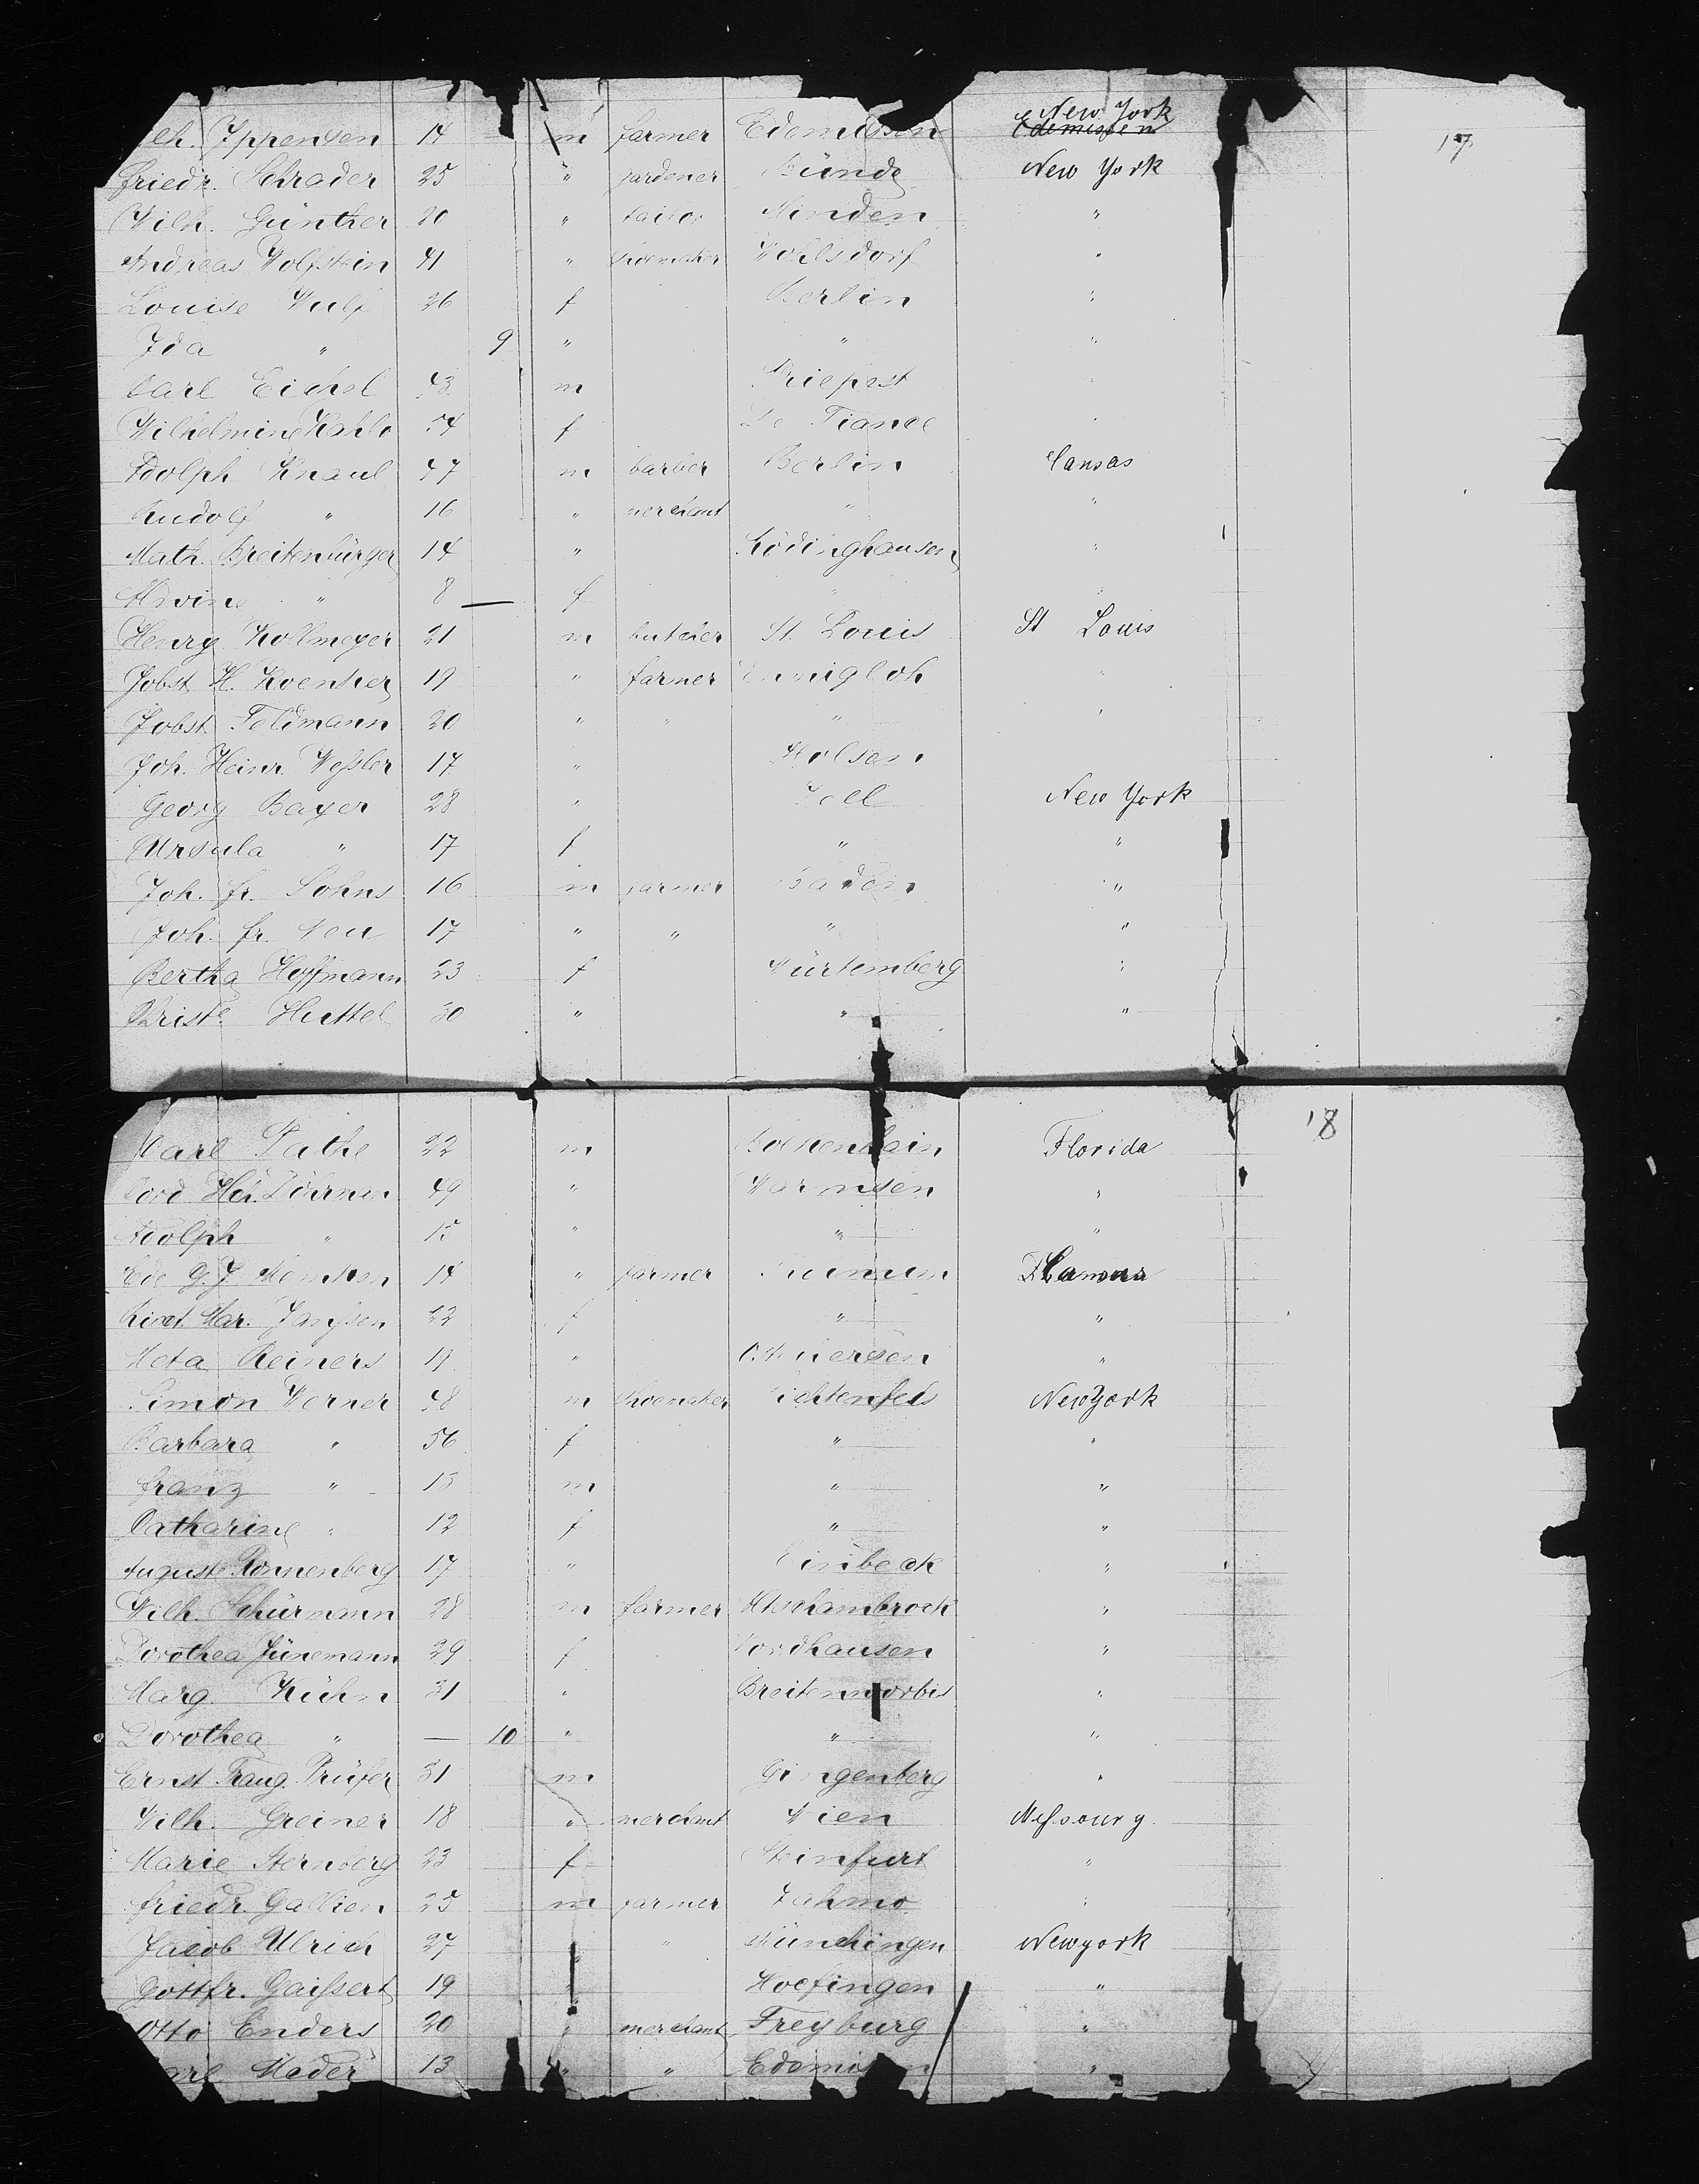 Ippensen 14 m farmer Edemissen New York Edemissen 17
Friedr. Schrader 25 " gardener Bünde New York
Wilh. Günther 20 " tailor Minden "
Andreas Wolfstein 41 " shoemaker Wohlsdorf "
Louise Wulf 26 f Berlin "
Ida " 9 " " "
Carl Eichel 43 m "
Wilhelmine 54 f "
Adolph Knaul 47 m barber Berlin Cansas
Rudolf " 16 " merchant " "
Math. Breitenbürger 14 " Rödinghausen "
" 8 — f " "
Henry Kollmeyer 21 m butcher St. Louis St Louis
Jobst H. Koenker 19 " farmer Ennigloh "
Jobst Feldmann 20 " " " "
Joh. Heinr. Weßler 17 " Holsen
Georg Bayer 28 " New York
Ursula " 17 f " "
Joh. Fr. Sohns 16 m farmer Baden "
Joh. Fr. Neu 17 " " " "
Bertha Hoffmann 23 f Würtemberg "
Christe Huttel 30 " " "
18
Carl Pathe 22 m Bolkenhain Florida
Cord Hch. Dörmer 49 " Warmsen "
Adolph " 15 " " "
14 " farmer
Mar. Janßen 22 f " "
Meta Reiners 19 " "
Simon Werner 48 m shoemaker Lichtenfels NewYork
Barbara " 56 f " "
Franz " 15 m " "
Catharine " 12 f " "
Auguste Ronnenberg 17 " Einbeck "
Wilh. Schürmann 28 m farmer "
Dorothea Jünemann 29 f Nordhausen "
Marg. Kühn 31 " Breitenworbis "
Dorothea " — 10 " " "
Ernst Traug. Prüfer 31 m Gingenberg "
Wilh. Greiner 18 " merchant Wien Meßoury
Marie Sternberg 23 f Steinfurt "
Friedr. Gallien 25 m farmer Zahmo "
Jacob Ulrich 27 " Münchingen Newyork
Gottfr. Gaißert 19 " Hoefingen "
Otto Enders 20 " merchant Freyburg "
Mader 13 " " Edemissen "